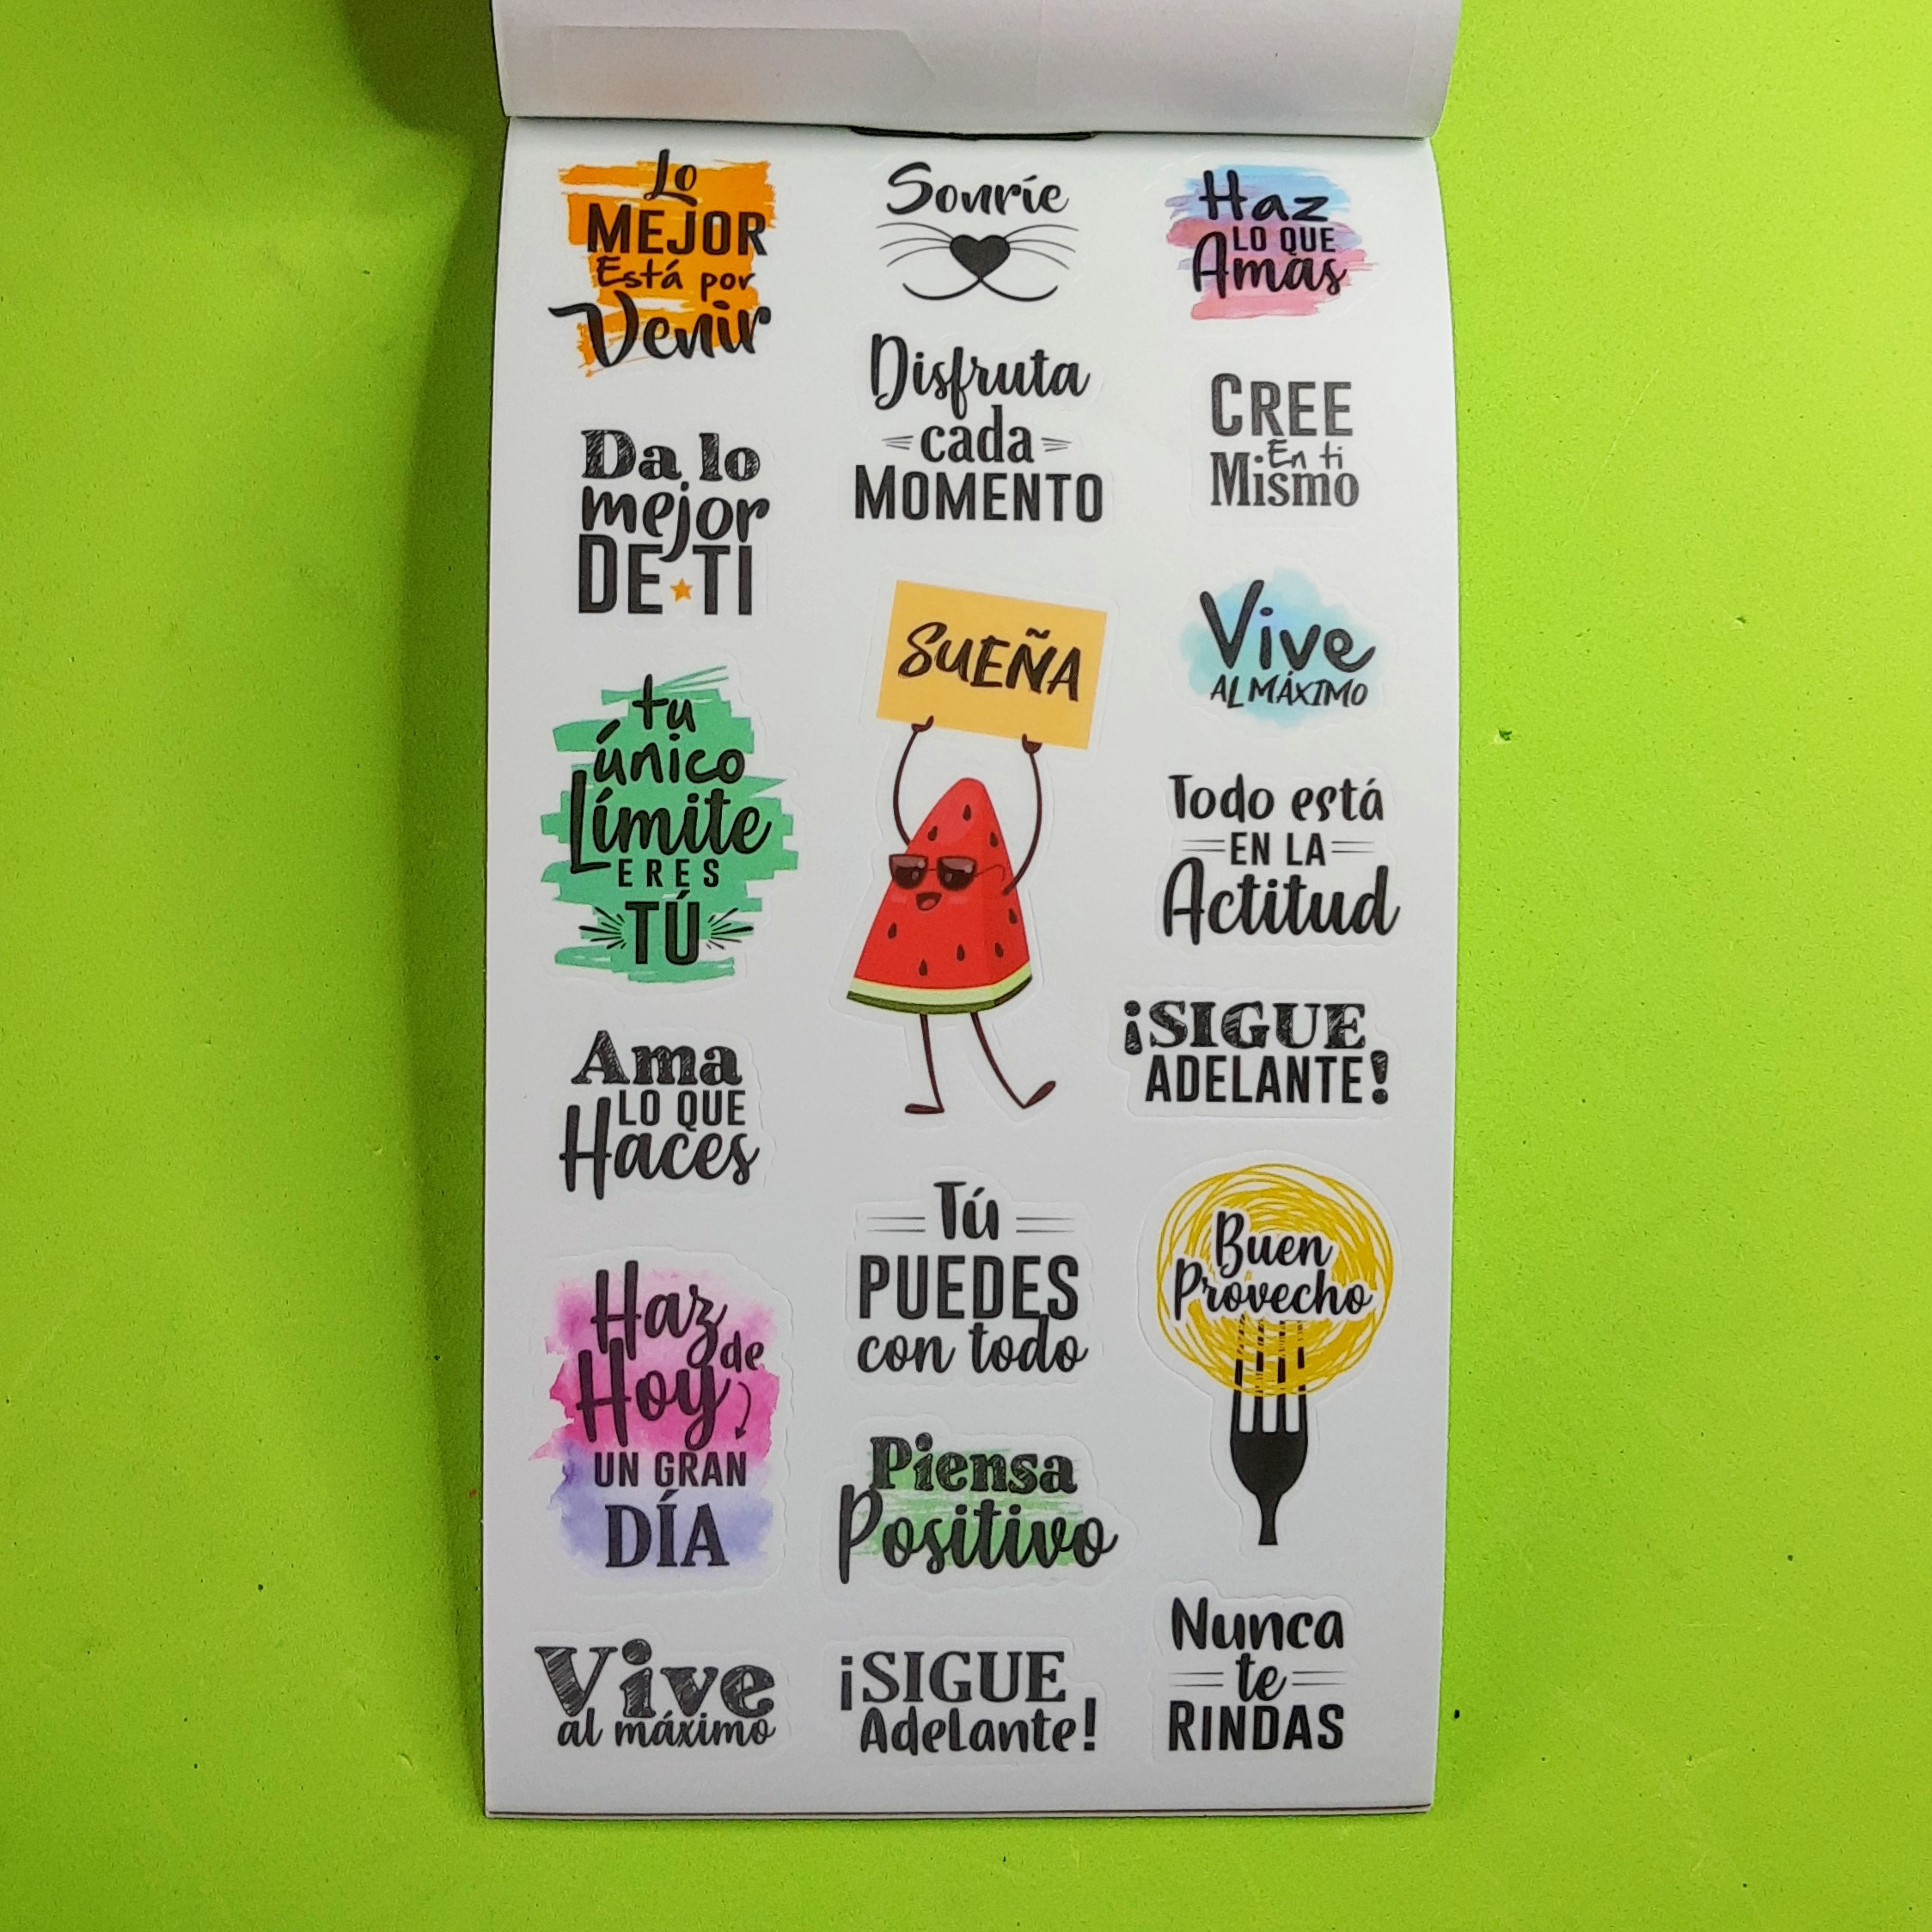 Lo
MEJOR
Está por
Venir
Da lo
mejor
DE TI
tu
único
Límite
ERES
TÚ
Ama
LO QUE
Haces
Haz
de
Hoy
UN GRAN
DÍA
Vive
al máximo
Sonríe
Disfruta
cada
MOMENTO
SUEÑA
Tú
PUEDES
con todo
Piensa
Positivo
¡SIGUE
Adelante!
Haz
LO QUE
Amas
CREE
En ti
Mismo
Vive
AL MÁXIMO
Todo está
EN LA
Actitud
¡SIGUE
ADELANTE!
Buen
Provecho
Nunca
te
RINDAS